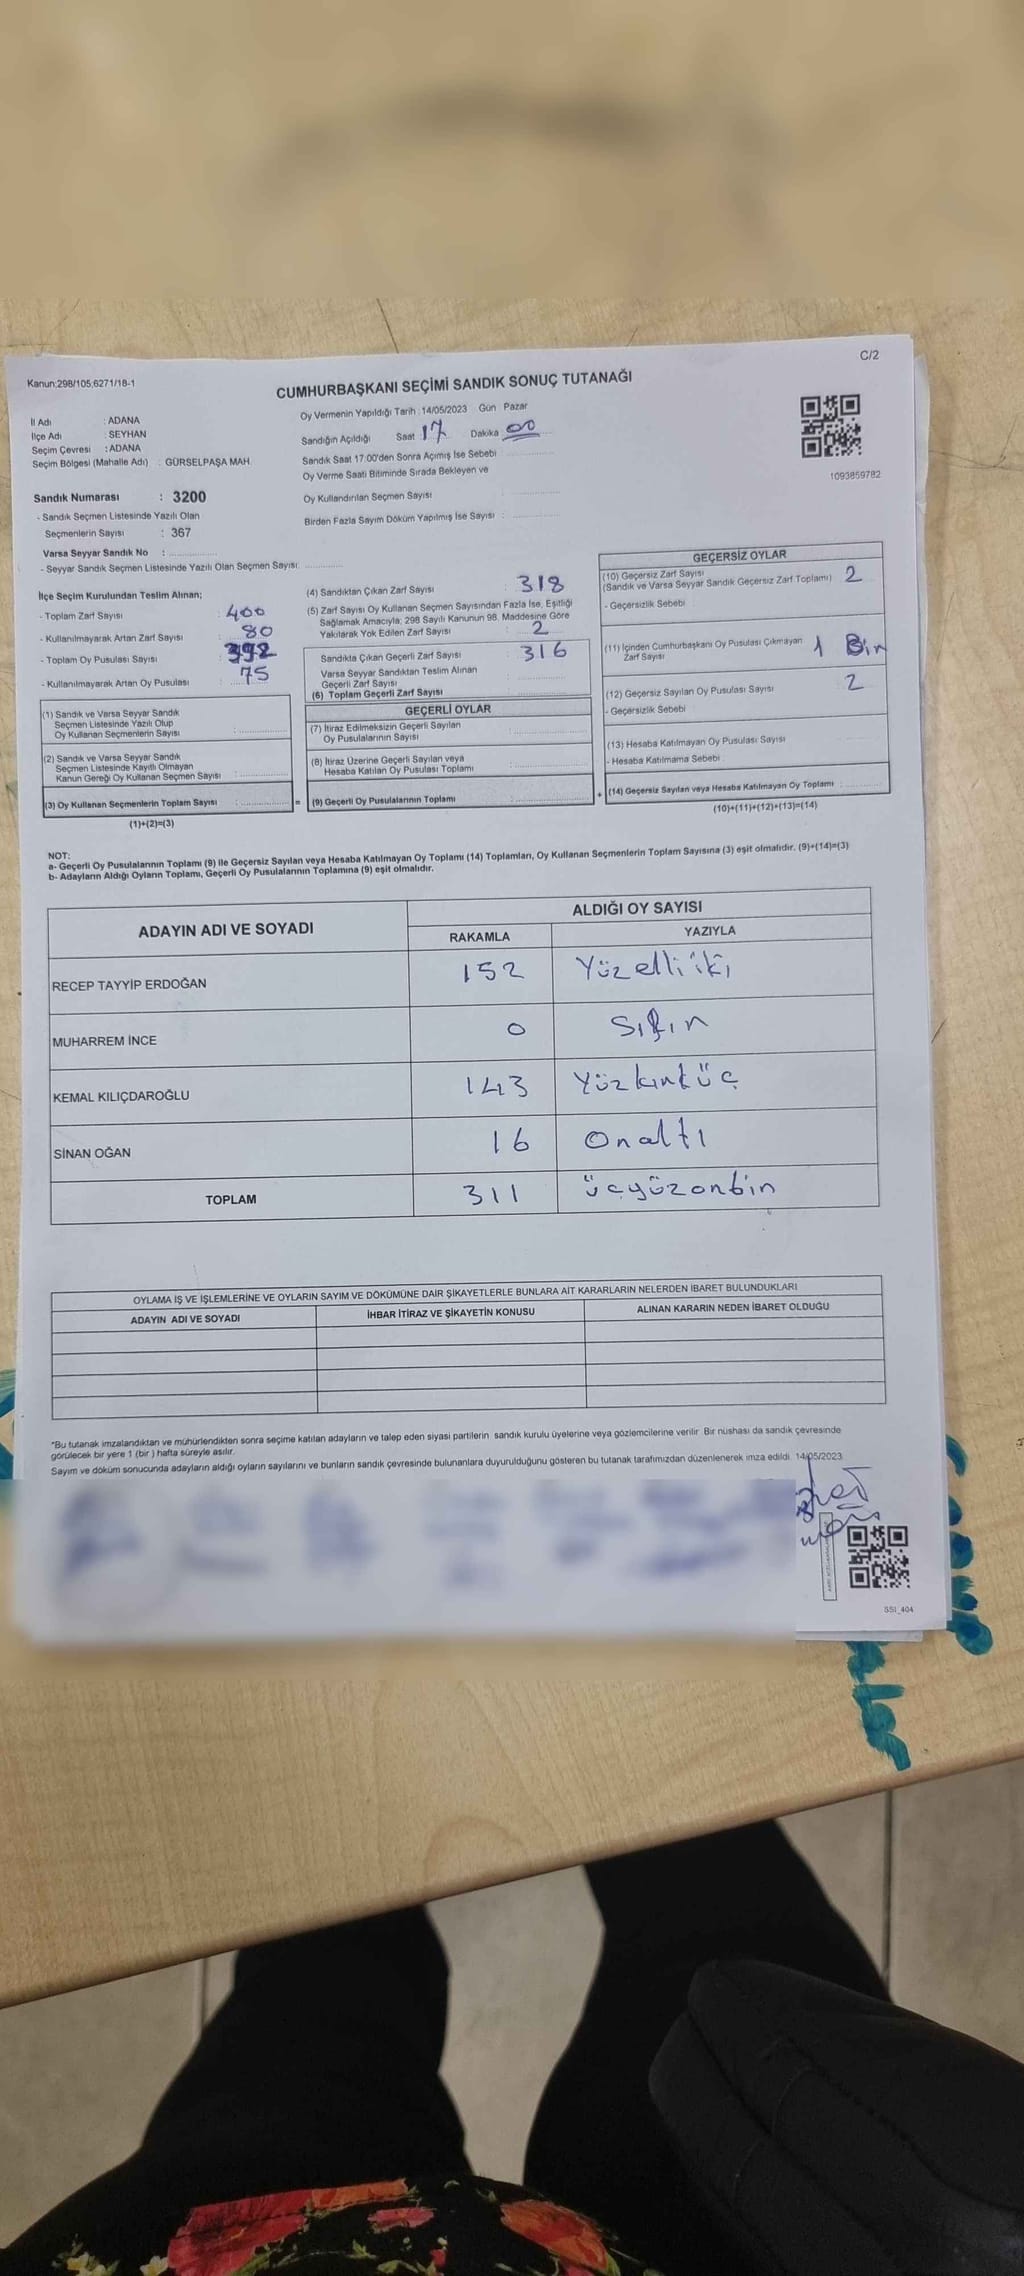 C/2
Kanun:298/105,6271/18-1
CUMHURBAŞKANI SEÇİMİ SANDIK SONUÇ TUTANAĞI
İl Adı : ADANA
İlçe Adı : SEYHAN
Seçim Çevresi : ADANA
Seçim Bölgesi (Mahalle Adı) : GÜRSELPAŞA MAH.
Oy Vermenin Yapıldığı Tarih : 14/05/2023 Gün Pazar
Sandığın Açıldığı Saat 17 Dakika 00
Sandık Saat 17.00'den Sonra Açımış İse Sebebi
Oy Verme Saati Bitiminde Sırada Bekleyen ve
Oy Kullandırılan Seçmen Sayısı
Birden Fazla Sayım Döküm Yapılmış İse Sayısı :
1093859782
Sandık Numarası : 3200
- Sandık Seçmen Listesinde Yazılı Olan
Seçmenlerin Sayısı : 367
Varsa Seyyar Sandık No :
- Seyyar Sandık Seçmen Listesinde Yazılı Olan Seçmen Sayısı:
İlçe Seçim Kurulundan Teslim Alınan;
- Toplam Zarf Sayısı : 400
- Kullanılmayarak Artan Zarf Sayısı : 80
- Toplam Oy Pusulası Sayısı : 392
- Kullanılmayarak Artan Oy Pusulası : 75
(1) Sandık ve Varsa Seyyar Sandık
Seçmen Listesinde Yazılı Olup
Oy Kullanan Seçmenlerin Sayısı :
(2) Sandık ve Varsa Seyyar Sandık
Seçmen Listesinde Kayıtlı Olmayan
Kanun Gereği Oy Kullanan Seçmen Sayısı :
(3) Oy Kullanan Seçmenlerin Toplam Sayısı : =
(1)+(2)=(3)
(4) Sandıktan Çıkan Zarf Sayısı : 318
(5) Zarf Sayısı Oy Kullanan Seçmen Sayısından Fazla İse, Eşitliği
Sağlamak Amacıyla; 298 Sayılı Kanunun 98. Maddesine Göre
Yakılarak Yok Edilen Zarf Sayısı : 2
Sandıkta Çıkan Geçerli Zarf Sayısı : 316
Varsa Seyyar Sandıktan Teslim Alınan
Geçerli Zarf Sayısı
(6) Toplam Geçerli Zarf Sayısı
GEÇERLİ OYLAR
(7) İtiraz Edilmeksizin Geçerli Sayılan
Oy Pusulalarının Sayısı :
(8) İtiraz Üzerine Geçerli Sayılan veya
Hesaba Katılan Oy Pusulası Toplamı :
(9) Geçerli Oy Pusulalarının Toplamı : +
GEÇERSİZ OYLAR
(10) Geçersiz Zarf Sayısı
(Sandık ve Varsa Seyyar Sandık Geçersiz Zarf Toplamı) 2
- Geçersizlik Sebebi
(11) İçinden Cumhurbaşkanı Oy Pusulası Çıkmayan
Zarf Sayısı 1 Bir
(12) Geçersiz Sayılan Oy Pusulası Sayısı 2
- Geçersizlik Sebebi
(13) Hesaba Katılmayan Oy Pusulası Sayısı
- Hesaba Katılmama Sebebi
(14) Geçersiz Sayılan veya Hesaba Katılmayan Oy Toplamı :
(10)+(11)+(12)+(13)=(14)
NOT:
a- Geçerli Oy Pusulalarının Toplamı (9) ile Geçersiz Sayılan veya Hesaba Katılmayan Oy Toplamı (14) Toplamları, Oy Kullanan Seçmenlerin Toplam Sayısına (3) eşit olmalıdır. (9)+(14)=(3)
b- Adayların Aldığı Oyların Toplamı, Geçerli Oy Pusulalarının Toplamına (9) eşit olmalıdır.
ADAYIN ADI VE SOYADI
ALDIĞI OY SAYISI
RAKAMLA YAZIYLA
RECEP TAYYİP ERDOĞAN 152 Yüz elli iki
MUHARREM İNCE 0 Sıfır
KEMAL KILIÇDAROĞLU 143 Yüzkırküç
SİNAN OĞAN 16 Onaltı
TOPLAM 311 üçyüzonbir
OYLAMA İŞ VE İŞLEMLERİNE VE OYLARIN SAYIM VE DÖKÜMÜNE DAİR ŞİKAYETLERLE BUNLARA AİT KARARLARIN NELERDEN İBARET BULUNDUKLARI
ADAYIN ADI VE SOYADI İHBAR İTİRAZ VE ŞİKAYETİN KONUSU ALINAN KARARIN NEDEN İBARET OLDUĞU
*Bu tutanak imzalandıktan ve mühürlendikten sonra seçime katılan adayların ve talep eden siyasi partilerin sandık kurulu üyelerine veya gözlemcilerine verilir. Bir nüshası da sandık çevresinde
görülecek bir yere 1 (bir ) hafta süreyle asılır.
Sayım ve döküm sonucunda adayların aldığı oyların sayılarını ve bunların sandık çevresinde bulunanlara duyurulduğunu gösteren bu tutanak tarafımızdan düzenlenerek imza edildi. 14/05/2023
SSI_404